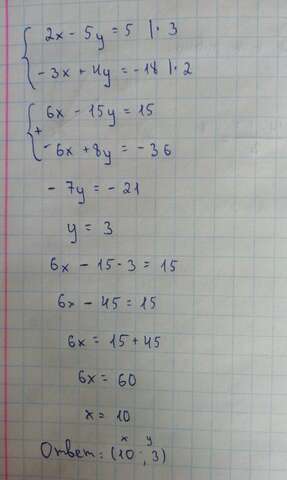 2x - 5y = 5 |· 3
- 3x + 4y = -18 |· 2
6x - 15y = 15
+
- 6x + 8y = - 36
- 7y = - 21
y = 3
6x - 15 · 3 = 15
6x - 45 = 15
6x = 15 + 45
6x = 60
x = 10
x y
Ответ: (10 ; 3)